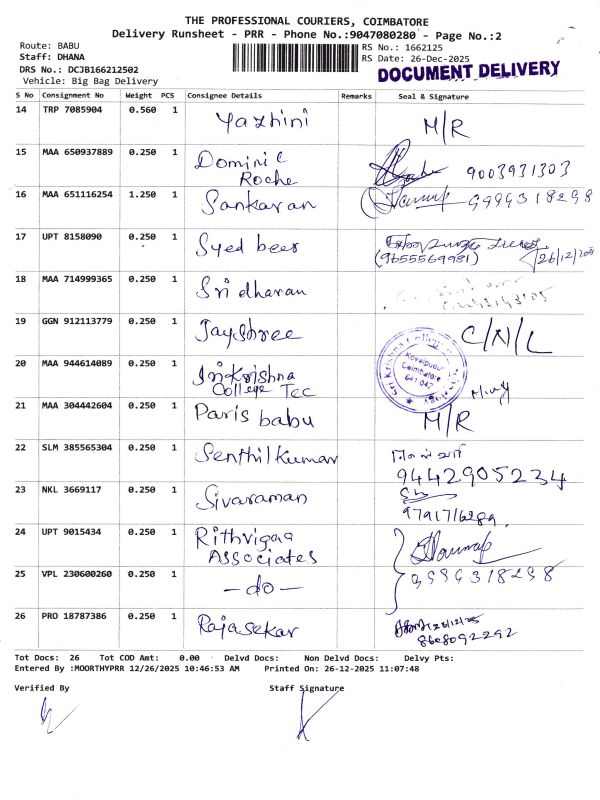 THE PROFESSIONAL COURIERS, COIMBATORE
Delivery Runsheet - PRR - Phone No.:9047080280 - Page No.:2
Route: BABU
Staff: DHANA
DRS No.: DCJB166212502
Vehicle: Big Bag Delivery
RS No.: 1662125
RS Date: 26-Dec-2025
DOCUMENT DELIVERY
S No Consignment No Weight PCS Consignee Details Remarks Seal & Signature
14 TRP 7085904 0.560 1 Yazhini M/R
15 MAA 650937889 0.250 1 Dominic Roche 9003931303
16 MAA 651116254 1.250 1 Sankaran 9999318298
17 UPT 8158090 0.250 1 Syed beer
(9655569981) 26/12/205
18 MAA 714999365 0.250 1 Sridharan
19 GGN 912113779 0.250 1 Jayshree C/N/L
20 MAA 944614089 0.250 1 Sri Krishna College Tec
Sri Krishna College of Technology
Kovaipudur
Coimbatore
641 042
21 MAA 304442604 0.250 1 Paris babu M/R
22 SLM 385565304 0.250 1 Senthil Kumar
9442905234
23 NKL 3669117 0.250 1 Sivaraman
9791716289
24 UPT 9015434 0.250 1 Rithvigaa Associates
25 VPL 230600260 0.250 1 -do- 9999318298
26 PRO 18787386 0.250 1 Rajasekar 26/12/25
8608092292
Tot Docs: 26 Tot COD Amt: 0.00 Delvd Docs: Non Delvd Docs: Delvy Pts:
Entered By :MOORTHYPRR 12/26/2025 10:46:53 AM Printed On: 26-12-2025 11:07:48
Verified By Staff Signature